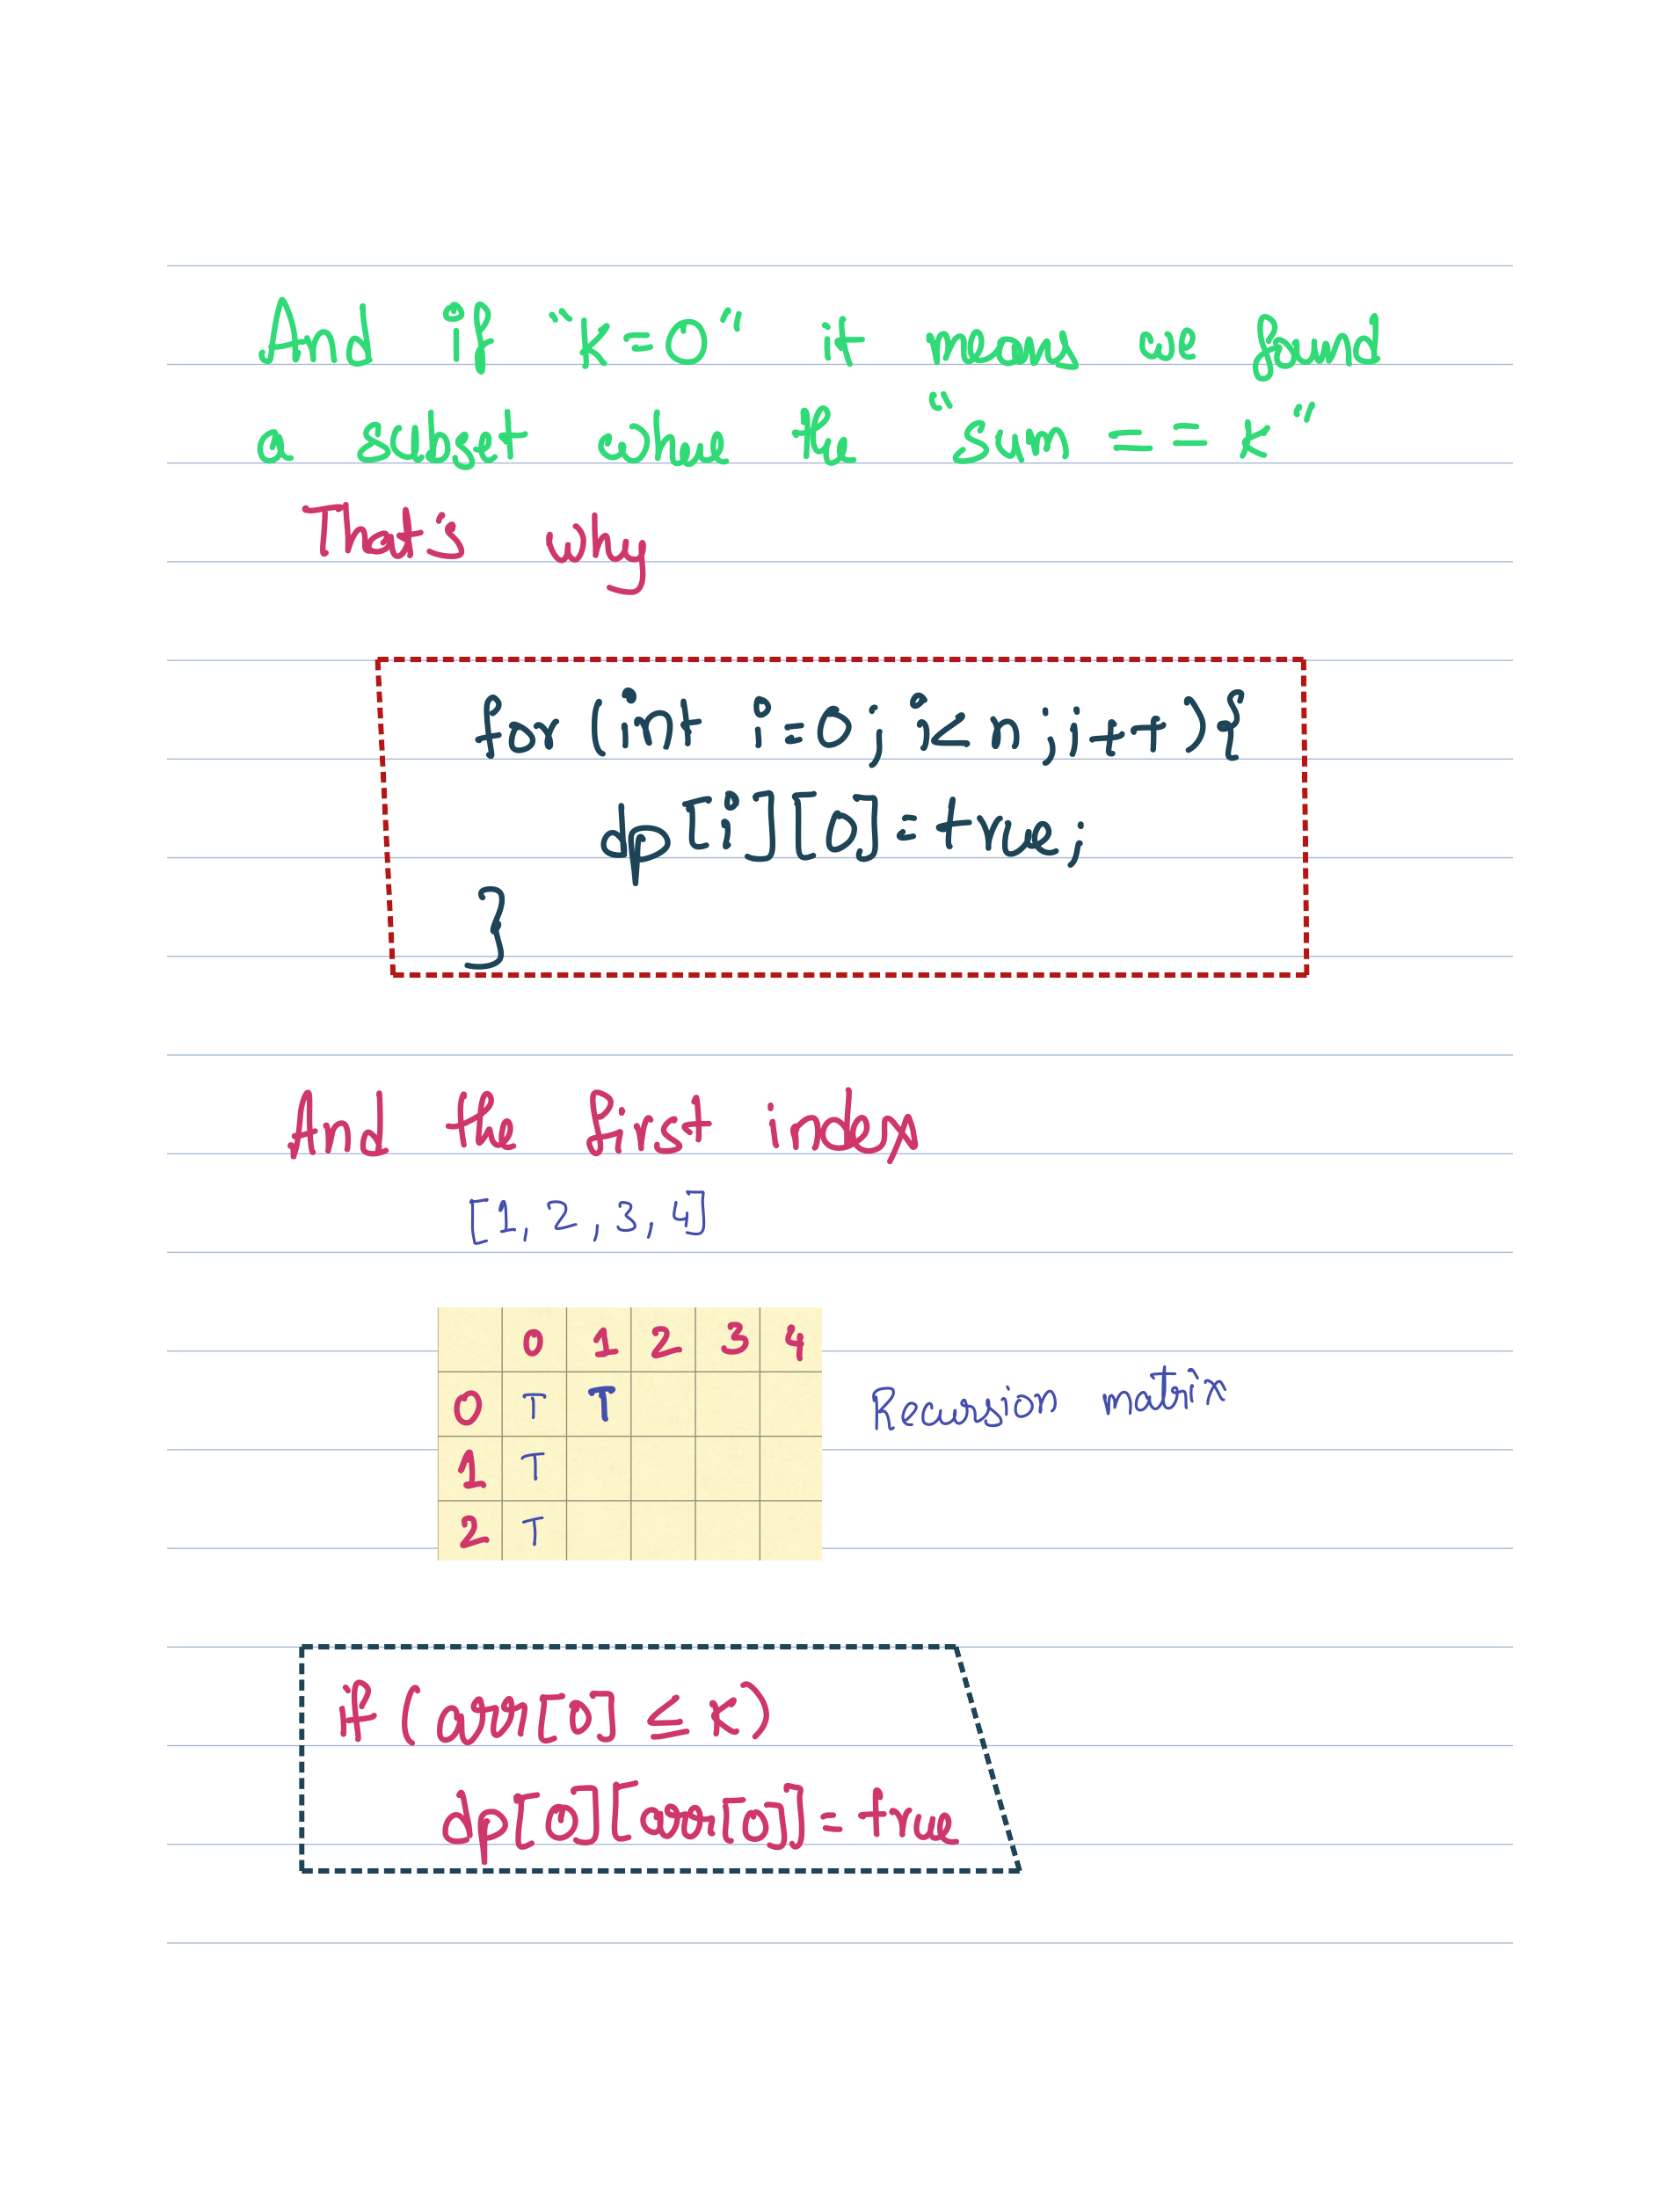 And if "k=0" it means we found
a subset where the "sum == k"
That's why
for (int i=0; i<n; i++){
dp[i][0]=true;
}
And the first index
[1, 2, 3, 4]
0 1 2 3 4
0 T T
Recursion matrix
1 T
2 T
if (arr[0] ≤ k)
dp[0][arr[0]]=true